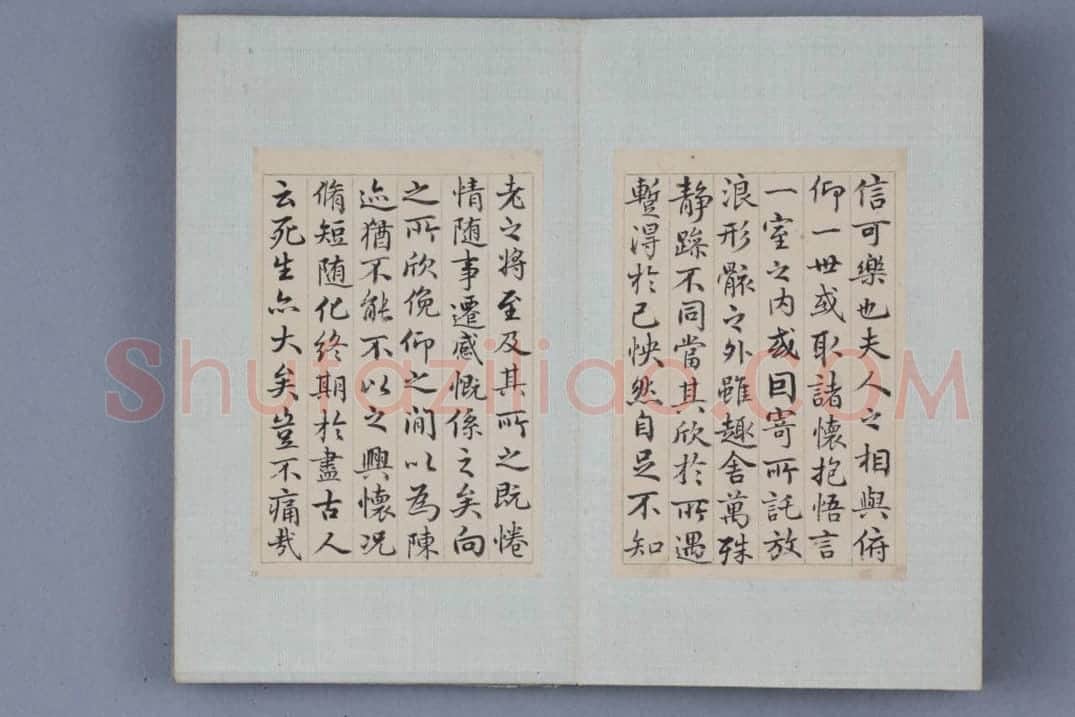 信可樂也夫人之相與俯
仰一世或取諸懷抱悟言
一室之内或回寄所託放
浪形骸之外雖趣舍萬殊
静躁不同當其欣於所遇
蹔得於己怏然自足不知
老之將至及其所之既惓
情随事遷感慨係之矣向
之所欣俛仰之間以為陳
迹猶不能不以之興懷况
脩短随化終期於盡古人
云死生亦大矣豈不痛哉
Shufaziliao.COM